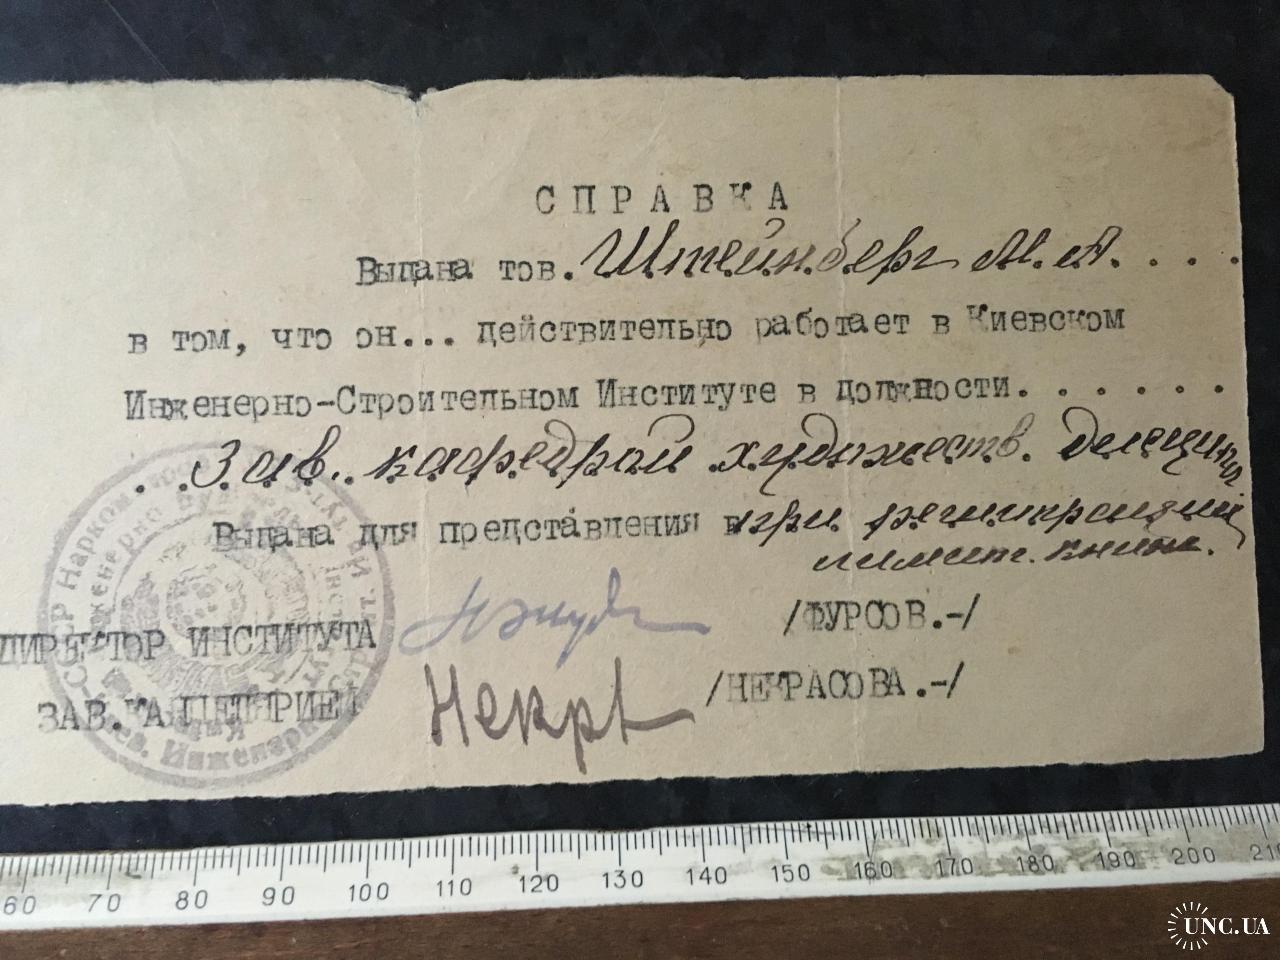 СПРАВКА
Выдана тов. Штейнберг М.А. . . .
в том, что он... действительно работает в Киевском
Инженерно-Строительном Институте в должности. . . . . .
. . Зав. кафедрой художеств.
Выдана для представления при
лимит. книж.
ДИРЕКТОР ИНСТИТУТА /ФУРСОВ.-/
ЗАВ.КАНЦЕЛЯРИЕЙ Некра /НЕКРАСОВА.-/
СССР Нарком
60 70 80 90 100 110 120 130 140 150 160 170 180 190 200 210
UNC.UA